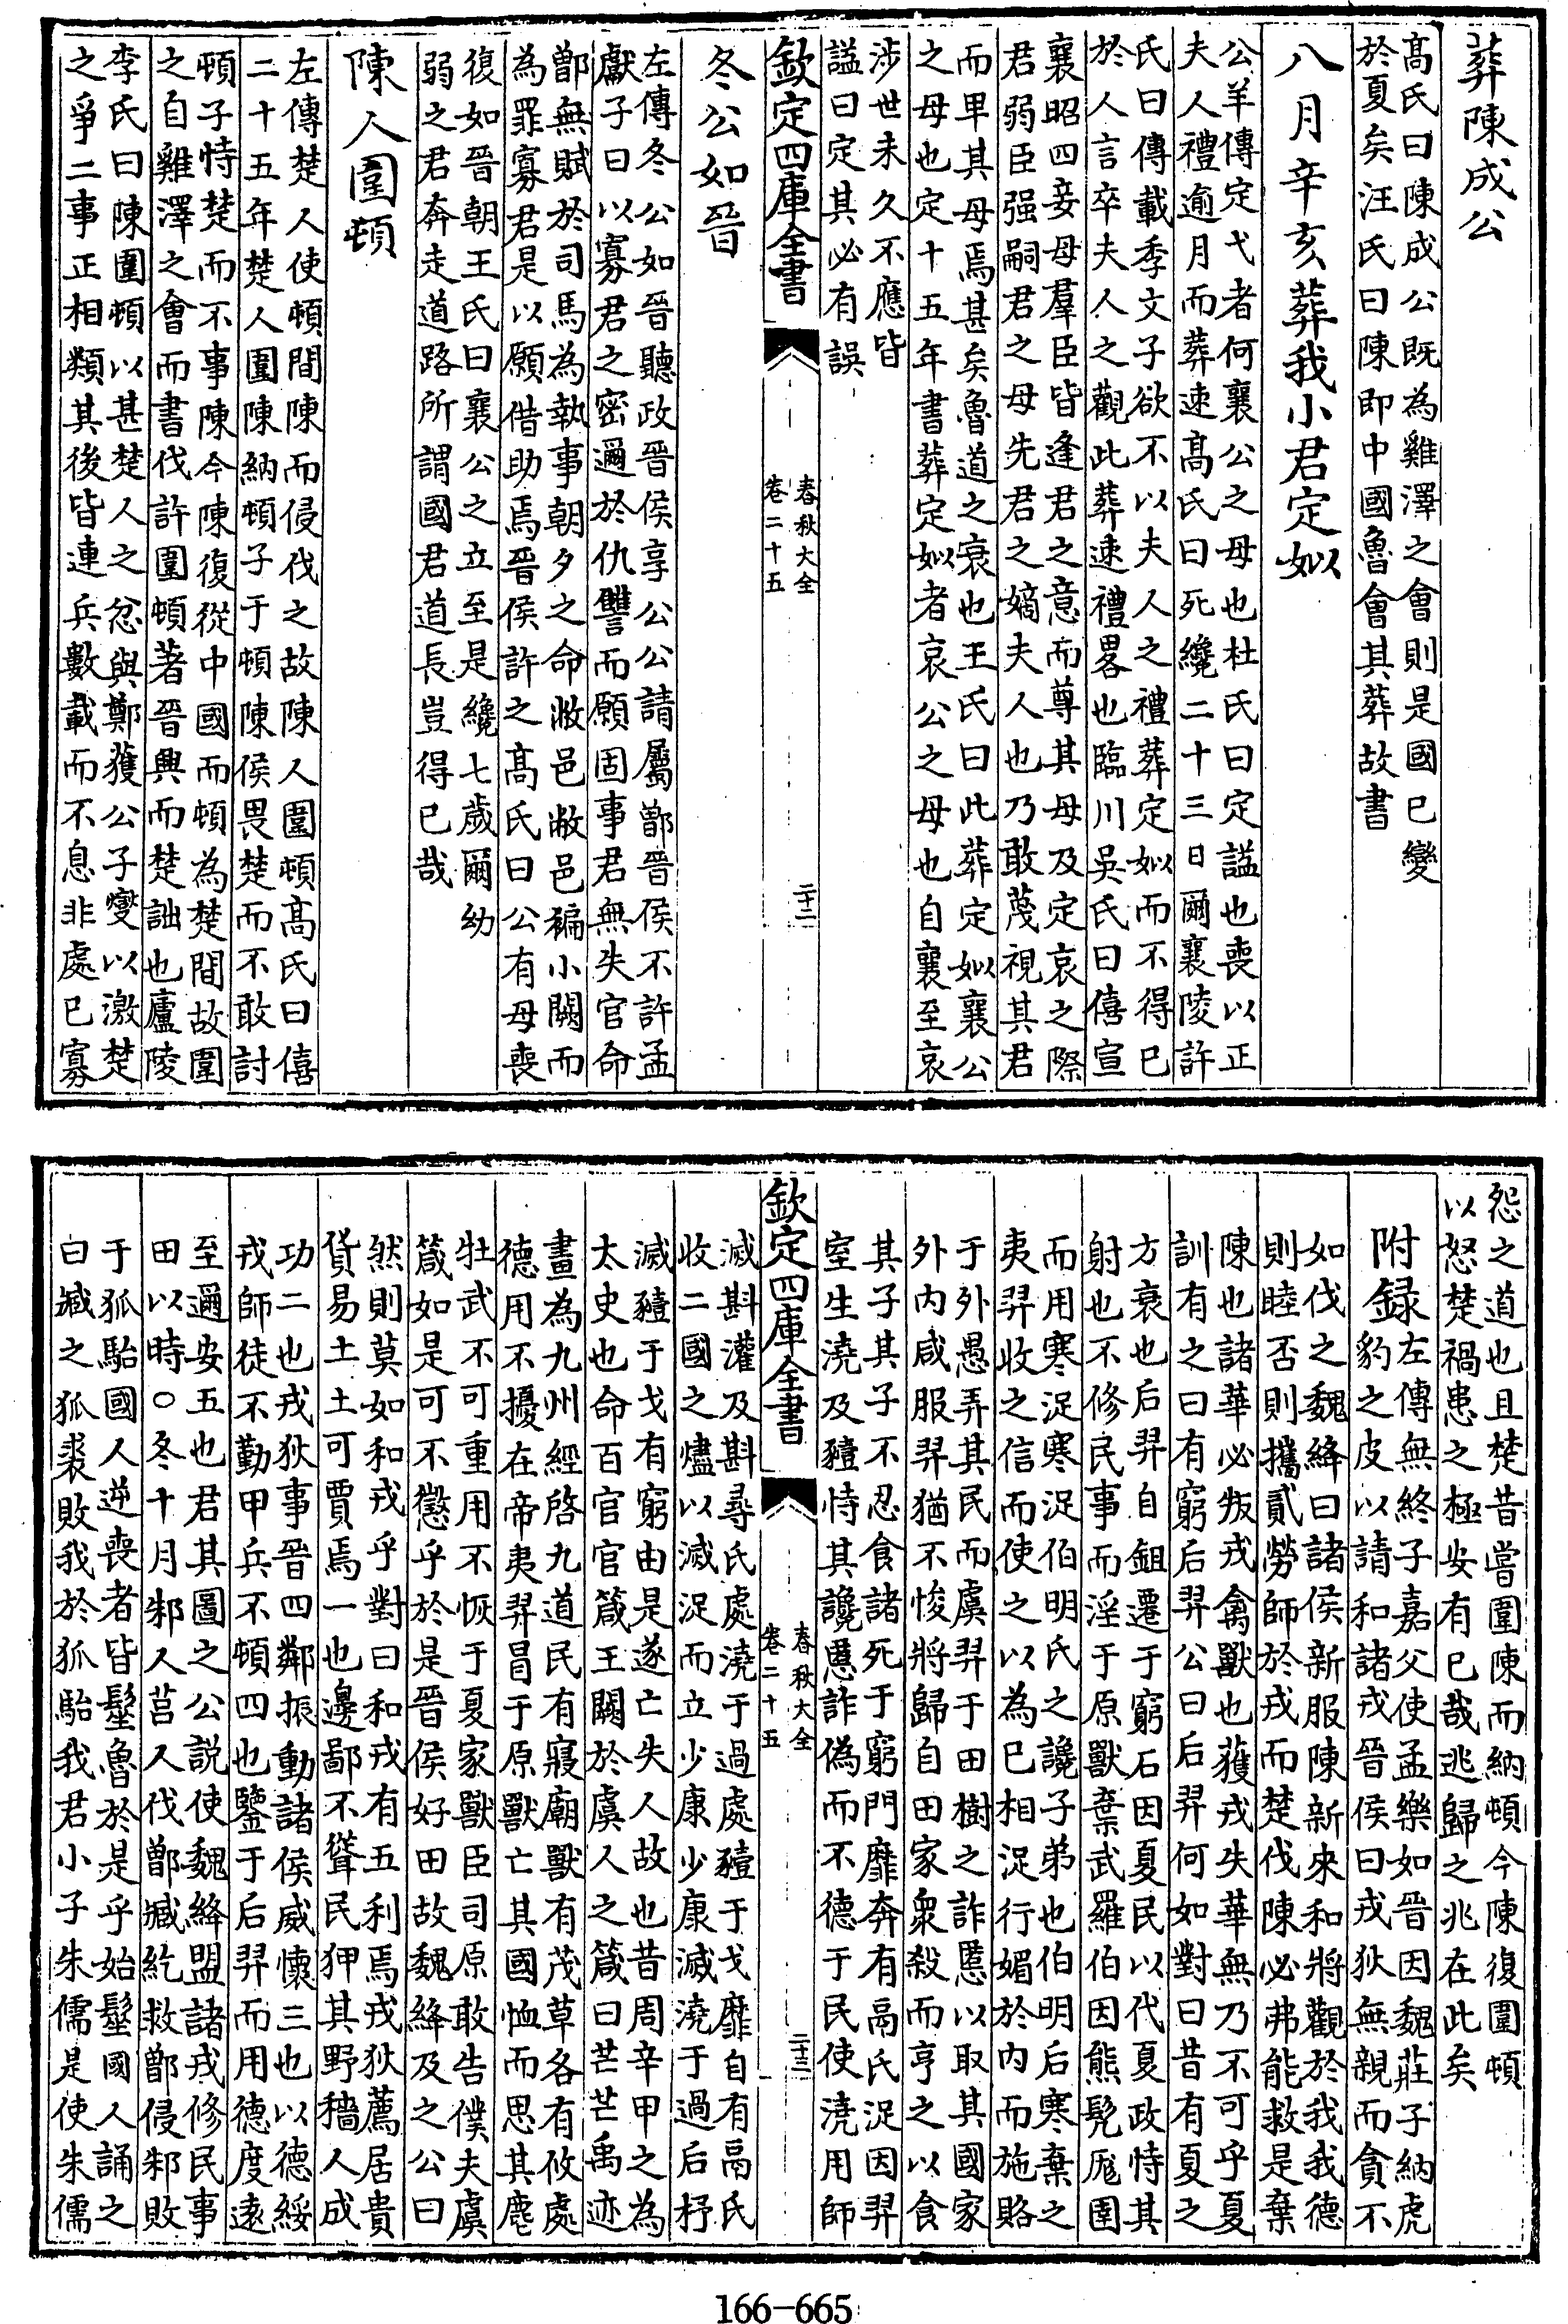 葬陳成公
髙氏曰陳成公既為雞澤之會則是國已變
於夏矣汪氏曰陳即中國魯會其葬故書
八月辛亥葬我小君定姒
公羊傳定弋者何襄公之母也杜氏曰定謚也喪以正
夫人禮逾月而葬速髙氏曰死纔二十三日爾襄陵許
氏曰傳載季文子欲不以夫人之禮葬定姒而不得已
於人言卒夫人之觀此葬速禮畧也臨川吳氏曰僖宣
襄昭四妾母羣臣皆逢君之意而尊其母及定哀之際
君弱臣强嗣君之母先君之嫡夫人也乃敢蔑視其君
而卑其母焉甚矣魯道之衰也王氏曰此葬定姒襄公
之母也定十五年書葬定姒者哀公之母也自襄至哀
涉世未久不應皆
謚曰定其必有誤
欽定四庫全書
春秋大全
卷二十五
二十二
冬公如晉
左傳冬公如晉聽政晉侯享公公請屬鄫晉侯不許孟
獻子曰以寡君之密邇於仇讐而願固事君無失官命
鄫無賦於司馬為執事朝夕之命敝邑敝邑褊小闕而
為罪寡君是以願借助焉晉侯許之髙氏曰公有母喪
復如晉朝王氏曰襄公之立至是纔七歲爾幼
弱之君奔走道路所謂國君道長豈得已哉
陳人圍頓
左傳楚人使頓間陳而侵伐之故陳人圍頓髙氏曰僖
二十五年楚人圍陳納頓子于頓陳侯畏楚而不敢討
頓子恃楚而不事陳今陳復從中國而頓為楚間故圍
之自雞澤之會而書伐許圍頓著晉興而楚詘也廬陵
李氏曰陳圍頓以甚楚人之忿與鄭獲公子燮以激楚
之爭二事正相類其後皆連兵數載而不息非處已寡
怨之道也且楚昔嘗圍陳而納頓今陳復圍頓
以怒楚禍患之極安有已哉逃歸之兆在此矣
附録左傳無終子嘉父使孟樂如晉因魏莊子納虎
豹之皮以請和諸戎晉侯曰戎狄無親而貪不
如伐之魏絳曰諸侯新服陳新來和將觀於我我德
則睦否則攜貳勞師於戎而楚伐陳必弗能救是棄
陳也諸華必叛戎禽獸也獲戎失華無乃不可乎夏
訓有之曰有窮后羿公曰后羿何如對曰昔有夏之
方衰也后羿自鉏遷于窮石因夏民以代夏政恃其
射也不修民事而淫于原獸棄武羅伯因熊髠尨圉
而用寒浞寒浞伯明氏之讒子弟也伯明后寒棄之
夷羿收之信而使之以為已相浞行媚於内而施賂
于外愚弄其民而虞羿于田樹之詐慝以取其國家
外内咸服羿猶不悛將歸自田家衆殺而亨之以食
其子其子不忍食諸死于窮門靡奔有鬲氏浞因羿
室生澆及豷恃其讒慝詐偽而不德于民使澆用師
欽定四庫全書
春秋大全
卷二十五
二十三
滅斟灌及斟尋氏處澆于過處豷于戈靡自有鬲氏
收二國之燼以滅浞而立少康少康滅澆于過后杼
滅豷于戈有窮由是遂亡失人故也昔周辛甲之為
太史也命百官官箴王闕於虞人之箴曰芒芒禹迹
畫為九州經啓九道民有寢廟獸有茂草各有攸處
德用不擾在帝夷羿冒于原獸亡其國恤而思其麀
牡武不可重用不恢于夏家獸臣司原敢告僕夫虞
箴如是可不懲乎於是晉侯好田故魏絳及之公曰
然則莫如和戎乎對曰和戎有五利焉戎狄薦居貴
貨易土土可賈焉一也邊鄙不聳民狎其野穡人成
功二也戎狄事晉四鄰振動諸侯威懷三也以德綏
戎師徒不勤甲兵不頓四也鑒于后羿而用德度逺
至邇安五也君其圖之公説使魏絳盟諸戎修民事
田以時○冬十月邾人莒人伐鄫臧紇救鄫侵邾敗
于狐駘國人逆喪者皆髽魯於是乎始髽國人誦之
曰臧之狐裘敗我於狐駘我君小子朱儒是使朱儒
166-665